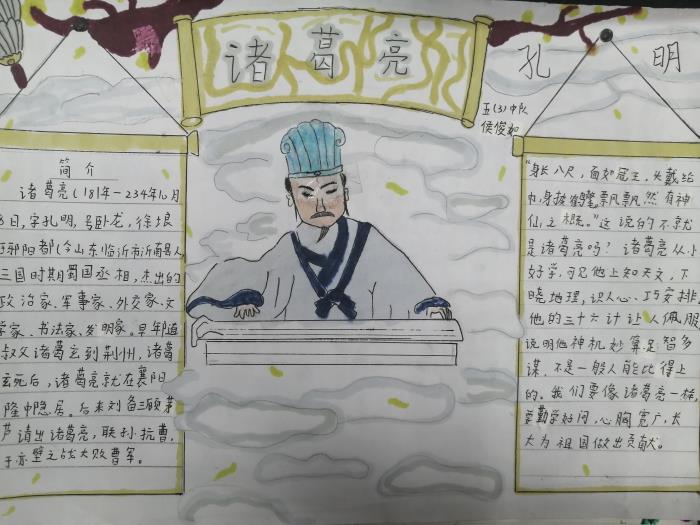 诸葛亮
孔明
五(3)中队
侯俊
简介
诸葛亮(181年-234年10月
8日,字孔明,号卧龙,徐琅
邪阳都(今山东临沂市沂南县人
三国时期蜀国丞相,杰出的
政治家、军事家、外交家、文
学家、书法家、发明家。早年随
叔父诸葛玄到荆州,诸葛
玄死后,诸葛亮就在襄阳
隆中隐居。后来刘备三顾茅
芦请出诸葛亮,联孙抗曹,
于赤壁之战大败曹军。
"身长八尺,面如冠玉,头戴纶
巾,身披鹤氅,飘飘然有神
仙之概。"这说的不就
是诸葛亮吗?诸葛亮从小
好学,可见他上知天文,下
晓地理,识人心、巧安排,
他的三十六计让人佩服
说明他神机妙算足智多
谋,不是一般人能比得上
的。我们要像诸葛亮一样,
要勤学好问,心胸宽广,长
大为祖国做出贡献。